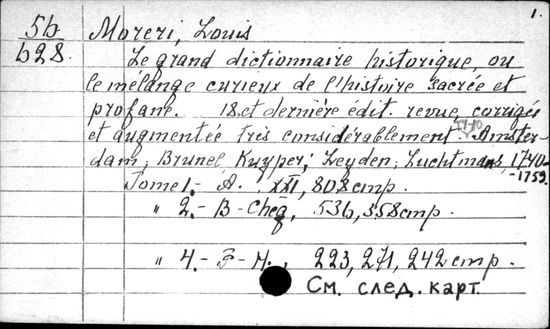 1.
56
628
Moreri, Louis
Le grand dictionnaire historique, ou
le mélange curieux de l'histoire sacrée et
profane. 18.et dernière édit. revue, corrigée
et augmentée très considérablement T.1-10. Amster-
dam; Brunel, Kuyper; Leyden; Luchtmans, 1740-
-1759.
Tome 1.- A. XXI, 808 стр.
" 2.- B-Cheq, 536, 358 стр.
" 4.- F-H., 223, 271, 242 стр.
См. след. карт.